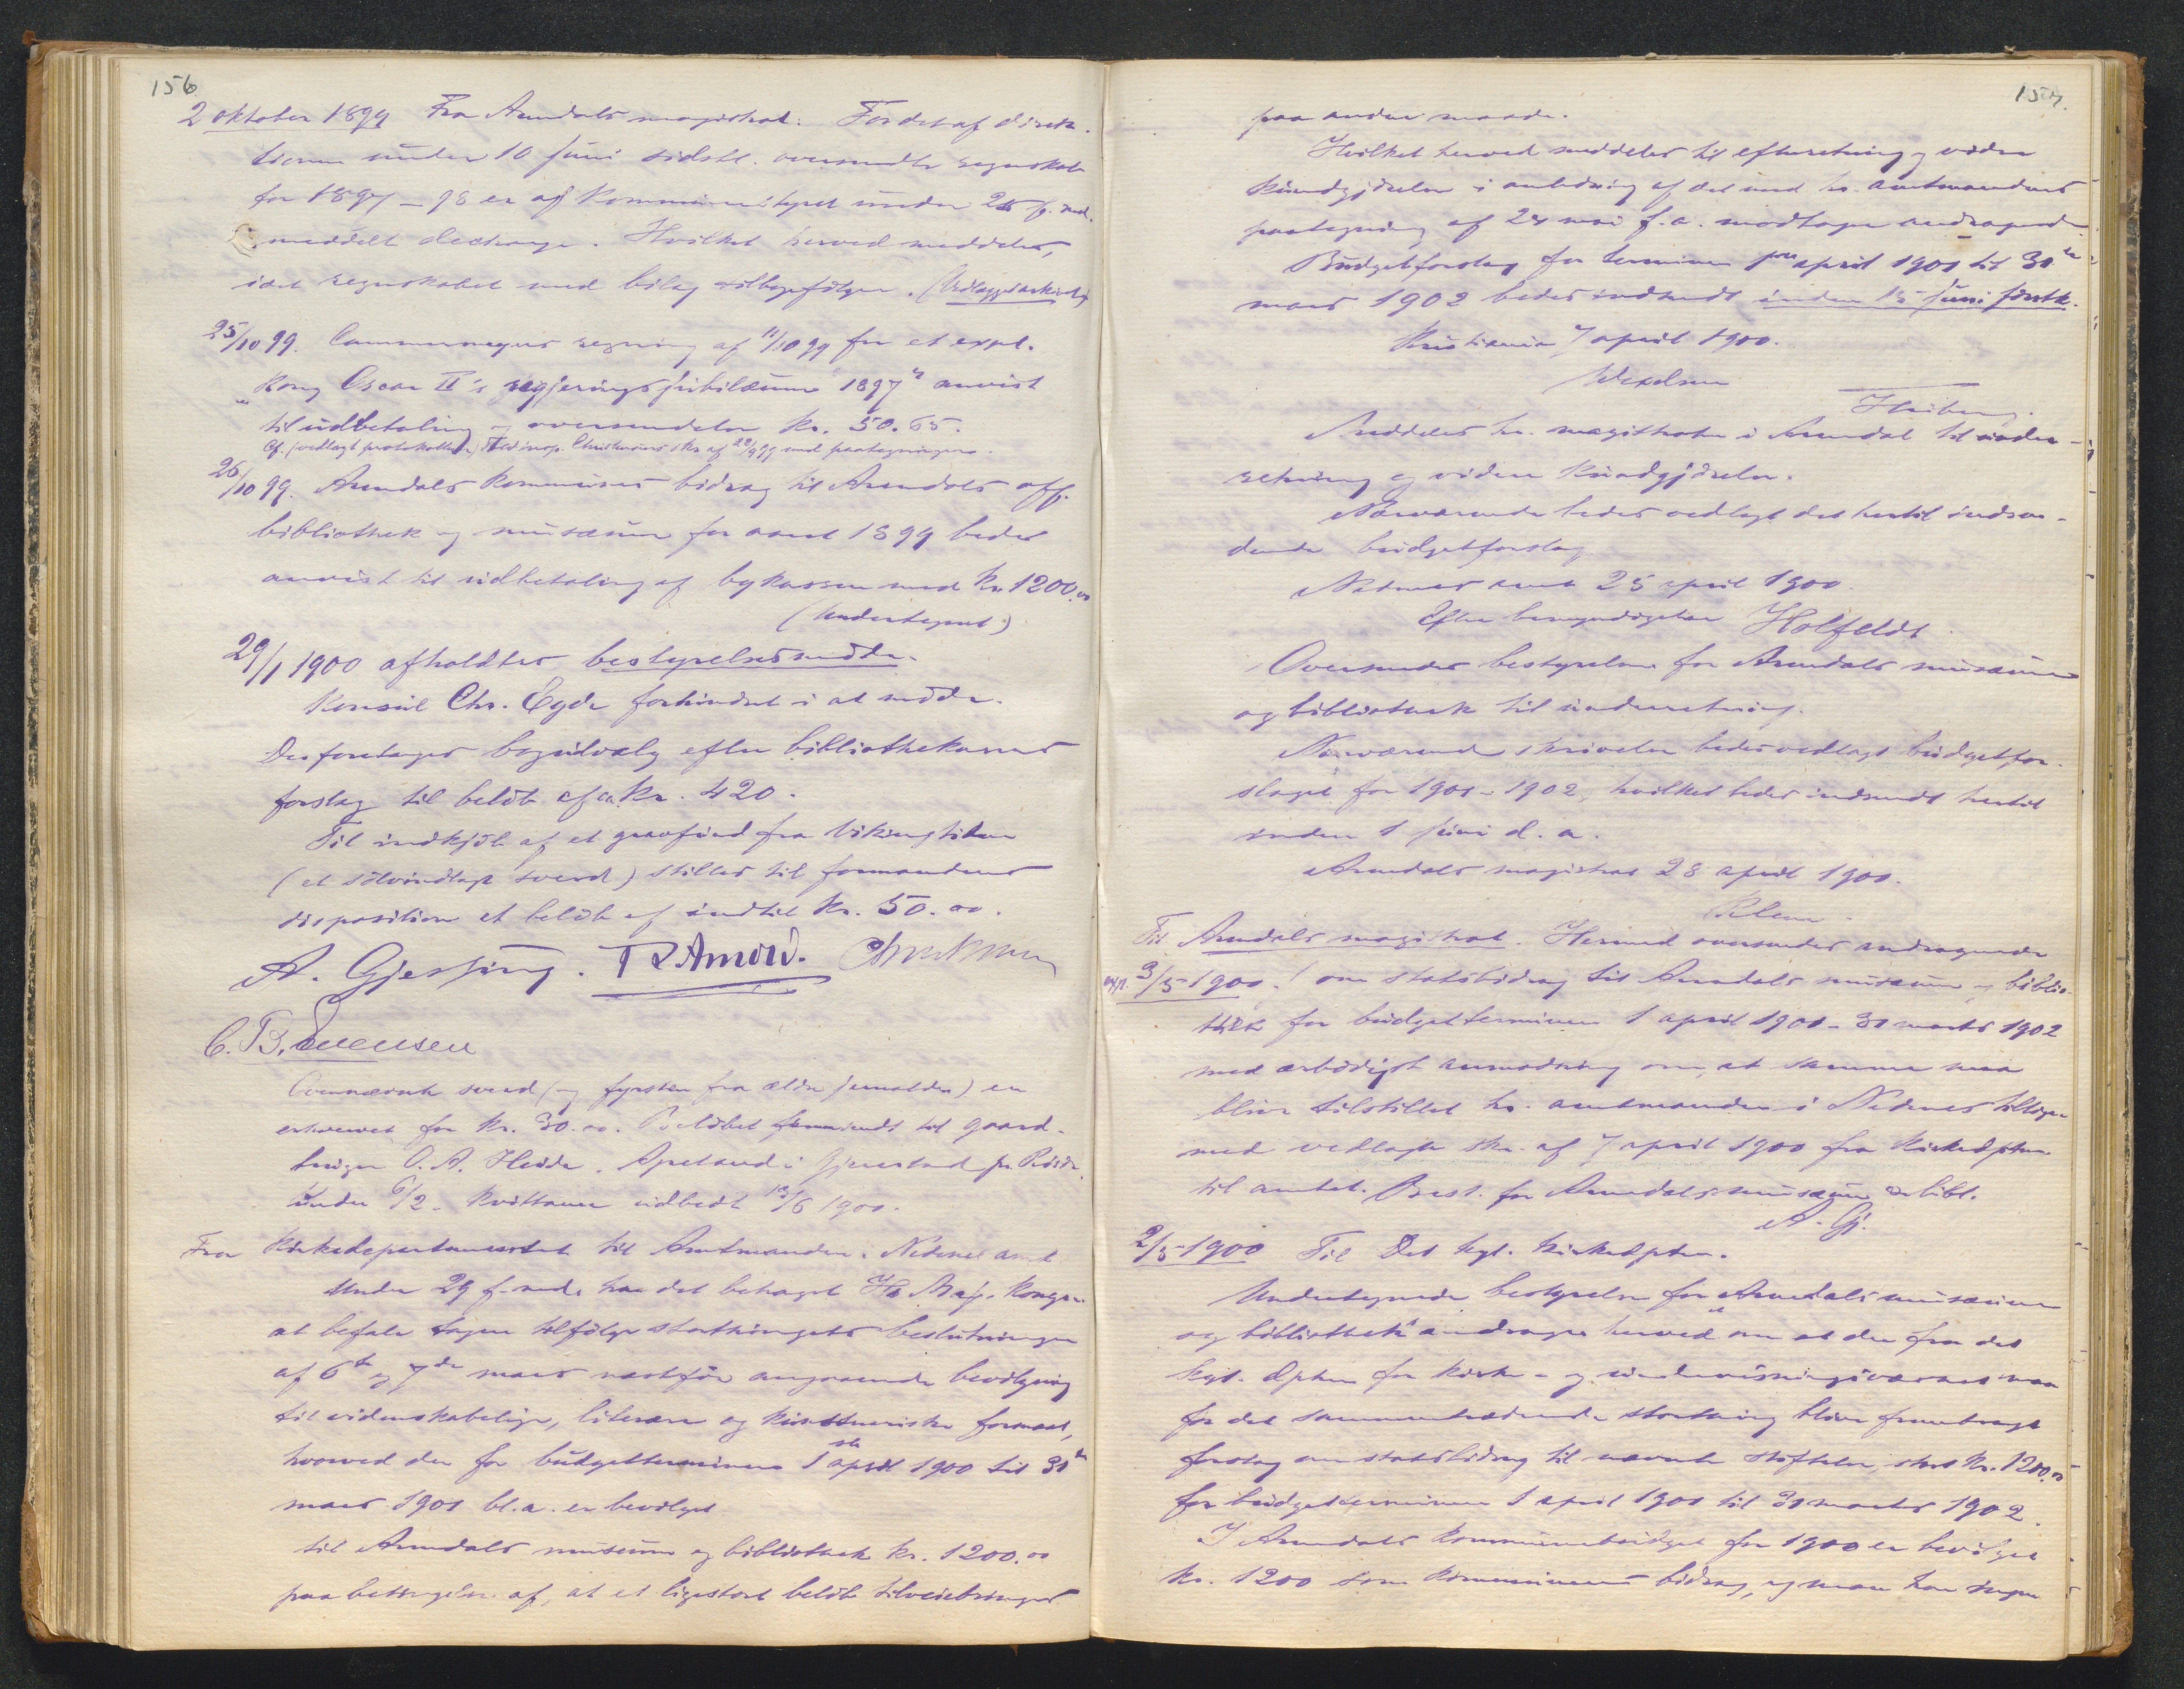 156
2 oktober 1899 Fra Arendals magistrat: Fordet af direk-
tionen under 10 juni sidstl. oversendte regnskab
for 1897-98 er af kommunestyret under 25 f. md.
meddelt decharge. Hvilket herved meddeles,
idet regnskabet med bilag tilbagefølger. (Vedlægges arkivet)
25/10 99. Cammermeyers regning af 11/10 99 for et expl.
"Kong Oscar II's regjeringsjubilæum 1897" anvist
til udbetaling og oversendelse kr. 50.65.
Cf. (vedlagt protokollen) skr. af 22/9 99 med paategninger.
26/10 99. Arendals kommunes bidrag til Arendals off.
bibliothek og musæum for aaret 1899 bedes
anvist til udbetaling af bykassen med kr. 1200.00
(Undertegnet)
29/1 1900 afholdtes bestyrelsesmøde.
Konsul Chr. Eyde forhindret i at møde.
Der foretages bogudvalg efter bibliothekarens
forslag til beløb af ca. kr. 420.
Til indkjøb af et gravfund fra Vikingtiden
(et sølvindlagt sverd) stilles til formandens
disposition et beløb af indtil kr. 50.00.
A. Gjessing.
C. B. Svensen
Ovennævnte sverd (og fyrsten fra ældre jernalder) er
erhvervet for kr. 30.00. Beløbet fremsendt til gaard-
bruger O. A. Heide. Apeland i Gjerestad pr. Risør
under 6/2. Kvittance udbedt 13/6 1900.
Fra Kirkedepartementet til Amtmanden i Nedenes amt
Under 29 f. md. har det behaget Hs Maj. Kongen
at befale tagen tilfølge storthingets beslutninger
af 6te og 7de mars næstfør angaaende bevilgning
til videnskabelige, literære og kunstneriske formaal,
hvorved der for budgetterminen 1ste april 1900 til 31te
mars 1901 bl.a. er bevilget
til Arendals museum og bibliothek kr. 1200.00
paa betingelse af, at et ligestort beløb tilveiebringes
157.
paa anden maade.
Hvilket herved meddeles til efterretning og videre
kundgjørelse i anledning af det med hr. amtmandens
paategning af 24 mai f.a. modtagne andragende.
Budgetforslag for terminen 1ste april 1901 til 31te
mars 1902 bedes indsendt inden 15 juni førstk.
Kristiania 7 april 1900.
Wexelsen
Heiberg.
Meddeles hr. magistraten i Arendal til under-
retning og videre kundgjørelse.
Nærværende bedes vedlagt det hertil indsen-
dende budgetforslag
Nedenes amt 25 april 1900.
Efter bemyndigelse Holfeldt
Oversendes bestyrelsen for Arendals musæum
og bibliothek til underretning.
Nærværende skrivelse bedes vedlagt budgetfor-
slaget for 1901-1902, hvilket bedes indsendt hertil
inden 1 juni d.a.
Arendals magistrat 28 april 1900.
Klem
Til Arendals magistrat. Hermed oversendes andragende
exp. 3/5 1900. om statsbidrag til Arendals musæum og biblio-
thek for budgetterminen 1 april 1901 - 31 marts 1902
med ærbødigst anmodning om, at samme maa
blive tilstillet hr. amtmanden i Nedenes tilligemed
med vedlagte skr. af 7 april 1900 fra Kirkedptm.
til amtet. Best. for Arendals musæum & bibl.
A. Gj.
2/5 1900 Til Det kgl. kirkedptm.
Undertegnede bestyrelse for "Arendals musæum
og bibliothek" andrager herved om at der fra det
kgl. dptm for kirke- og undervisningsvæsenet maa
for det sammentrædende storthing blive fremlagt
forslag om statsbidrag til nævnte stiftelse, stort kr. 1200.00
for budgetterminen 1 april 1901 til 31 marts 1902.
I Arendals kommunebudget for 1900 er bevilget
kr. 1200 som kommunens bidrag, og man har ingen